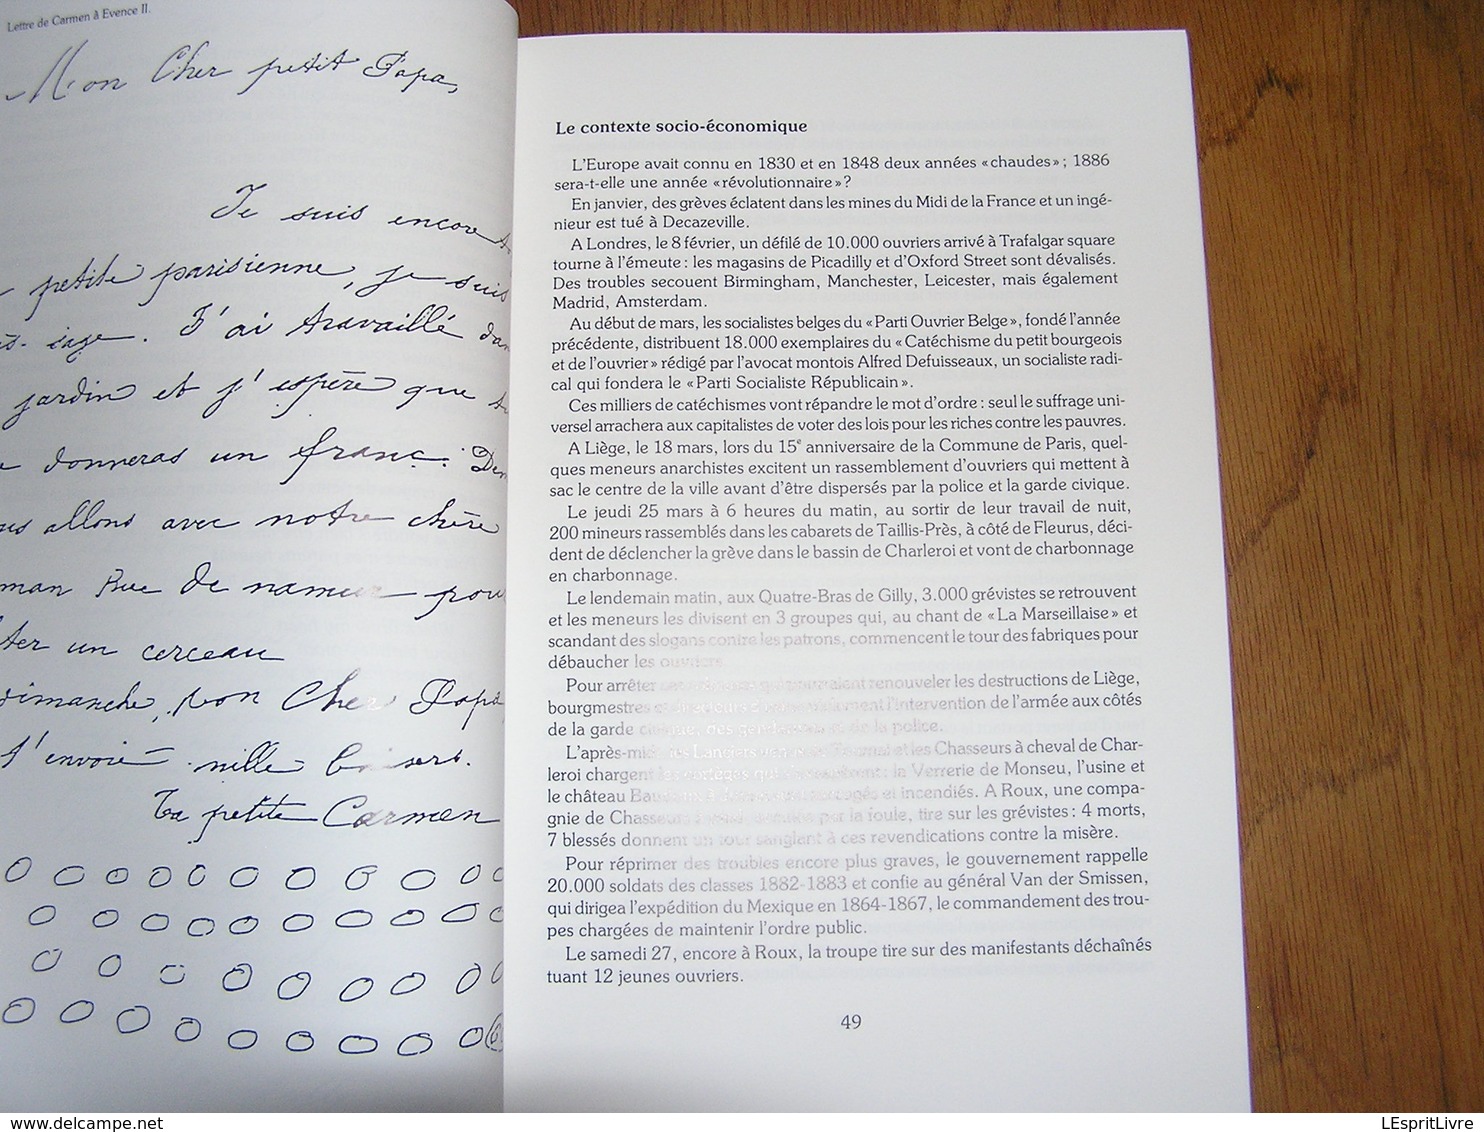 Lettre de Carmen à Evence II.
Mon Cher petit Papa,
Je suis encore
petite parisienne, je suis
sage. J'ai travaillé
jardin et j'espère que
donneras un franc.
allons avec notre chère
man Rue de namur pour
ter un cerceau
dimanche, mon Cher Papa,
t'envoie mille baisers.
Ta petite Carmen
Le contexte socio-économique
L'Europe avait connu en 1830 et en 1848 deux années «chaudes»; 1886
sera-t-elle une année «révolutionnaire»?
En janvier, des grèves éclatent dans les mines du Midi de la France et un ingé-
nieur est tué à Decazeville.
A Londres, le 8 février, un défilé de 10.000 ouvriers arrivé à Trafalgar square
tourne à l'émeute : les magasins de Picadilly et d'Oxford Street sont dévalisés.
Des troubles secouent Birmingham, Manchester, Leicester, mais également
Madrid, Amsterdam.
Au début de mars, les socialistes belges du «Parti Ouvrier Belge», fondé l'année
précédente, distribuent 18.000 exemplaires du «Catéchisme du petit bourgeois
et de l'ouvrier» rédigé par l'avocat montois Alfred Defuisseaux, un socialiste radi-
cal qui fondera le «Parti Socialiste Républicain».
Ces milliers de catéchismes vont répandre le mot d'ordre : seul le suffrage uni-
versel arrachera aux capitalistes de voter des lois pour les riches contre les pauvres.
A Liège, le 18 mars, lors du 15e anniversaire de la Commune de Paris, quel-
ques meneurs anarchistes excitent un rassemblement d'ouvriers qui mettent à
sac le centre de la ville avant d'être dispersés par la police et la garde civique.
Le jeudi 25 mars à 6 heures du matin, au sortir de leur travail de nuit,
200 mineurs rassemblés dans les cabarets de Taillis-Près, à côté de Fleurus, déci-
dent de déclencher la grève dans le bassin de Charleroi et vont de charbonnage
en charbonnage.
Le lendemain matin, aux Quatre-Bras de Gilly, 3.000 grévistes se retrouvent
et les meneurs les divisent en 3 groupes qui, au chant de «La Marseillaise» et
scandant des slogans contre les patrons, commencent le tour des fabriques pour
débaucher les ouvriers.
Pour arrêter renouveler les destructions de Liège,
bourgmestres l'intervention de l'armée aux côtés
de la garde civique, des gendarmes et de la police.
L'après-midi, les Lanciers et les Chasseurs à cheval de Char-
leroi chargent les cortèges qui : la Verrerie de Monseu, l'usine et
le château et incendiés. A Roux, une compa-
gnie de Chasseurs par la foule, tire sur les grévistes : 4 morts,
7 blessés donnent un tour sanglant à ces revendications contre la misère.
Pour réprimer des troubles encore plus graves, le gouvernement rappelle
20.000 soldats des classes 1882-1883 et confie au général Van der Smissen,
qui dirigea l'expédition du Mexique en 1864-1867, le commandement des trou-
pes chargées de maintenir l'ordre public.
Le samedi 27, encore à Roux, la troupe tire sur des manifestants déchaînés
tuant 12 jeunes ouvriers.
49
www.delcampe.net
LEspritLivre